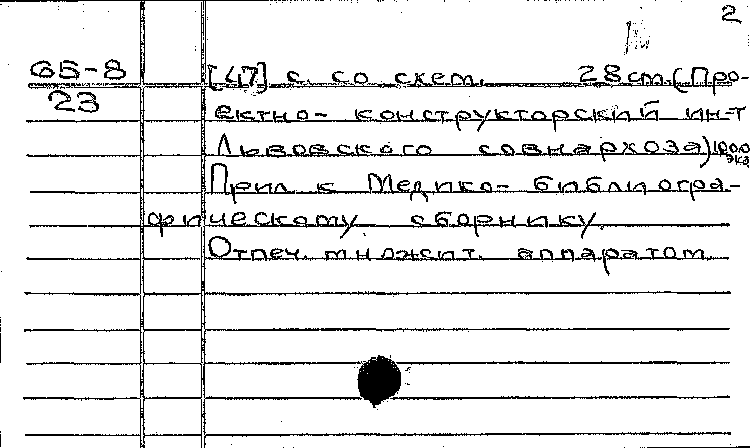 2
65-8 [47] с. со схем. 28 см. (Про-
23 ектно- конструкторский ин-т
Львовского совнархоза) 1000 экз
Прил к Медико- библиогра-
фическому сборнику.
Отпеч. множит. аппаратом.